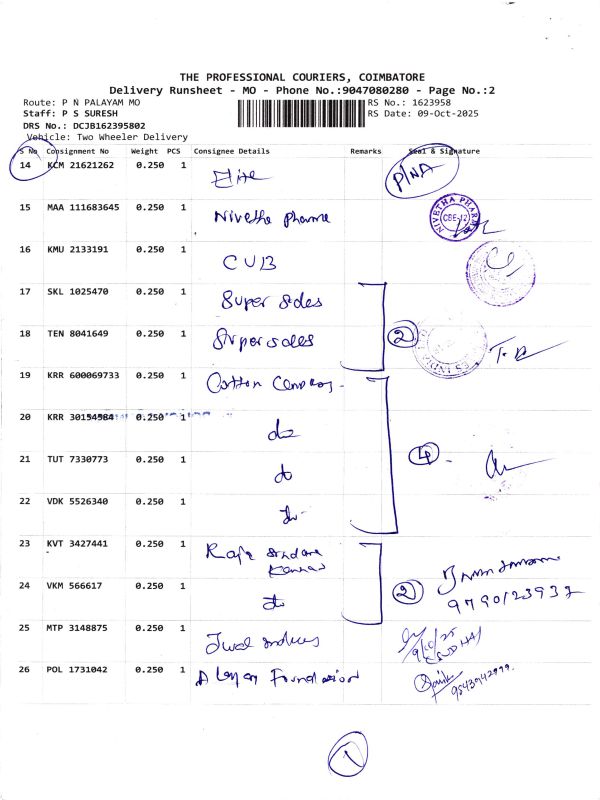 THE PROFESSIONAL COURIERS, COIMBATORE
Delivery Runsheet - MO - Phone No.:9047080280 - Page No.:2
Route: P N PALAYAM MO RS No.: 1623958
Staff: P S SURESH RS Date: 09-Oct-2025
DRS No.: DCJB162395802
Vehicle: Two Wheeler Delivery
S No Consignment No Weight PCS Consignee Details Remarks Seal & Signature
14 KCM 21621262 0.250 1 Elite P/NA
15 MAA 111683645 0.250 1 Nivetha pharma NIVETHA PHARMA CBE-12
16 KMU 2133191 0.250 1 CUB
17 SKL 1025470 0.250 1 Super sales
18 TEN 8041649 0.250 1 Super sales 2
19 KRR 600069733 0.250 1 Cotton
20 KRR 30154584 0.250 1 do
21 TUT 7330773 0.250 1 do 4
22 VDK 5526340 0.250 1 do
23 KVT 3427441 0.250 1
24 VKM 566617 0.250 1 do 2 9790123932
25 MTP 3148875 0.250 1 9/10/25
26 POL 1731042 0.250 1 Foundation 9843042999
1